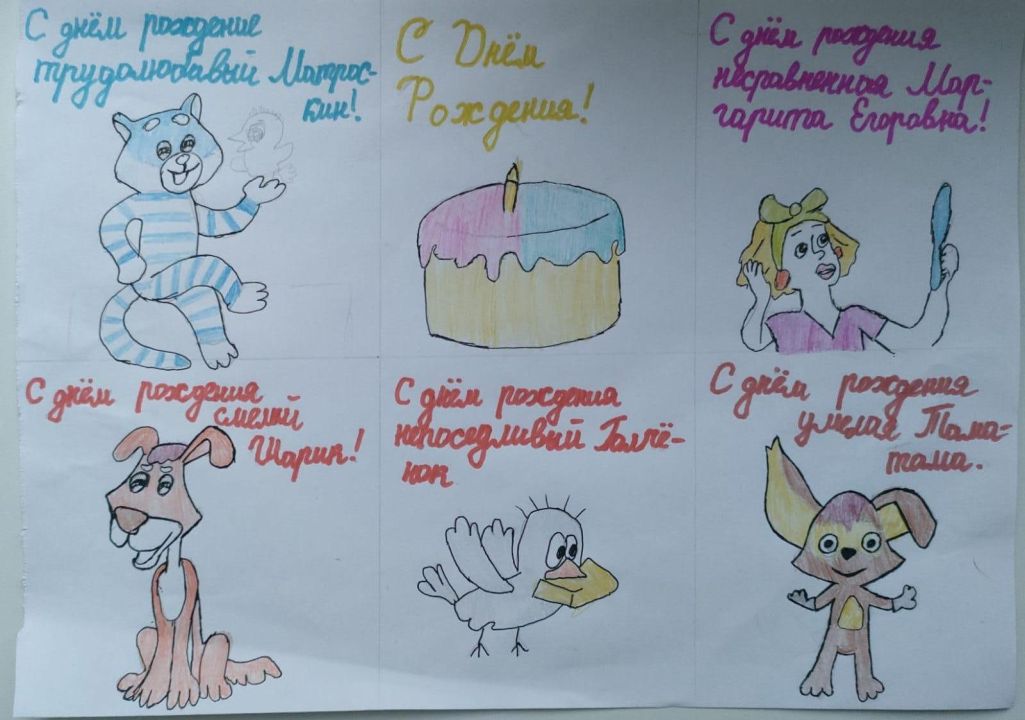 С днём рождение
трудолюбавый Матрос-
кин!
С Днём
Рождения!
С днём рождения
несравненная Мар-
гарита Егоровна!
С днём рождения
смелый
Шарик!
С днём рождения
непоседливый Галчё-
нок
С днём рождения
умелая Тама-
тама.